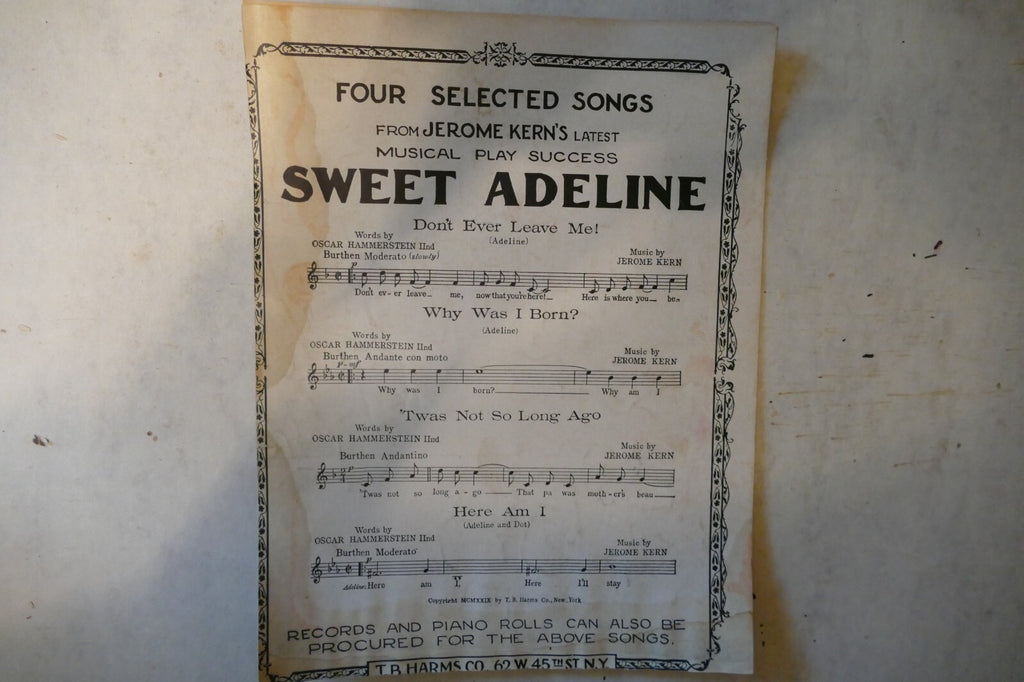 FOUR SELECTED SONGS
FROM JEROME KERN'S LATEST
MUSICAL PLAY SUCCESS
SWEET ADELINE
Don't Ever Leave Me!
(Adeline)
Words by
OSCAR HAMMERSTEIN IInd
Music by
JEROME KERN
Burthen Moderato (slowly)
p
Don't ev-er leave me, now that you're here! Here is where you be-
Why Was I Born?
(Adeline)
Words by
OSCAR HAMMERSTEIN IInd
Music by
JEROME KERN
Burthen Andante con moto
p-mf
Why was I born? Why am I
'Twas Not So Long Ago
Words by
OSCAR HAMMERSTEIN IInd
Music by
JEROME KERN
Burthen Andantino
p
'Twas not so long a-go That pa was moth-er's beau
Here Am I
(Adeline and Dot)
Words by
OSCAR HAMMERSTEIN IInd
Music by
JEROME KERN
Burthen Moderato
p
Adeline: Here am I, Here I'll stay
Copyright MCMXXIX by T. B. Harms Co., New York
RECORDS AND PIANO ROLLS CAN ALSO BE
PROCURED FOR THE ABOVE SONGS.
T.B. HARMS CO. 62 W 45TH ST. N.Y.